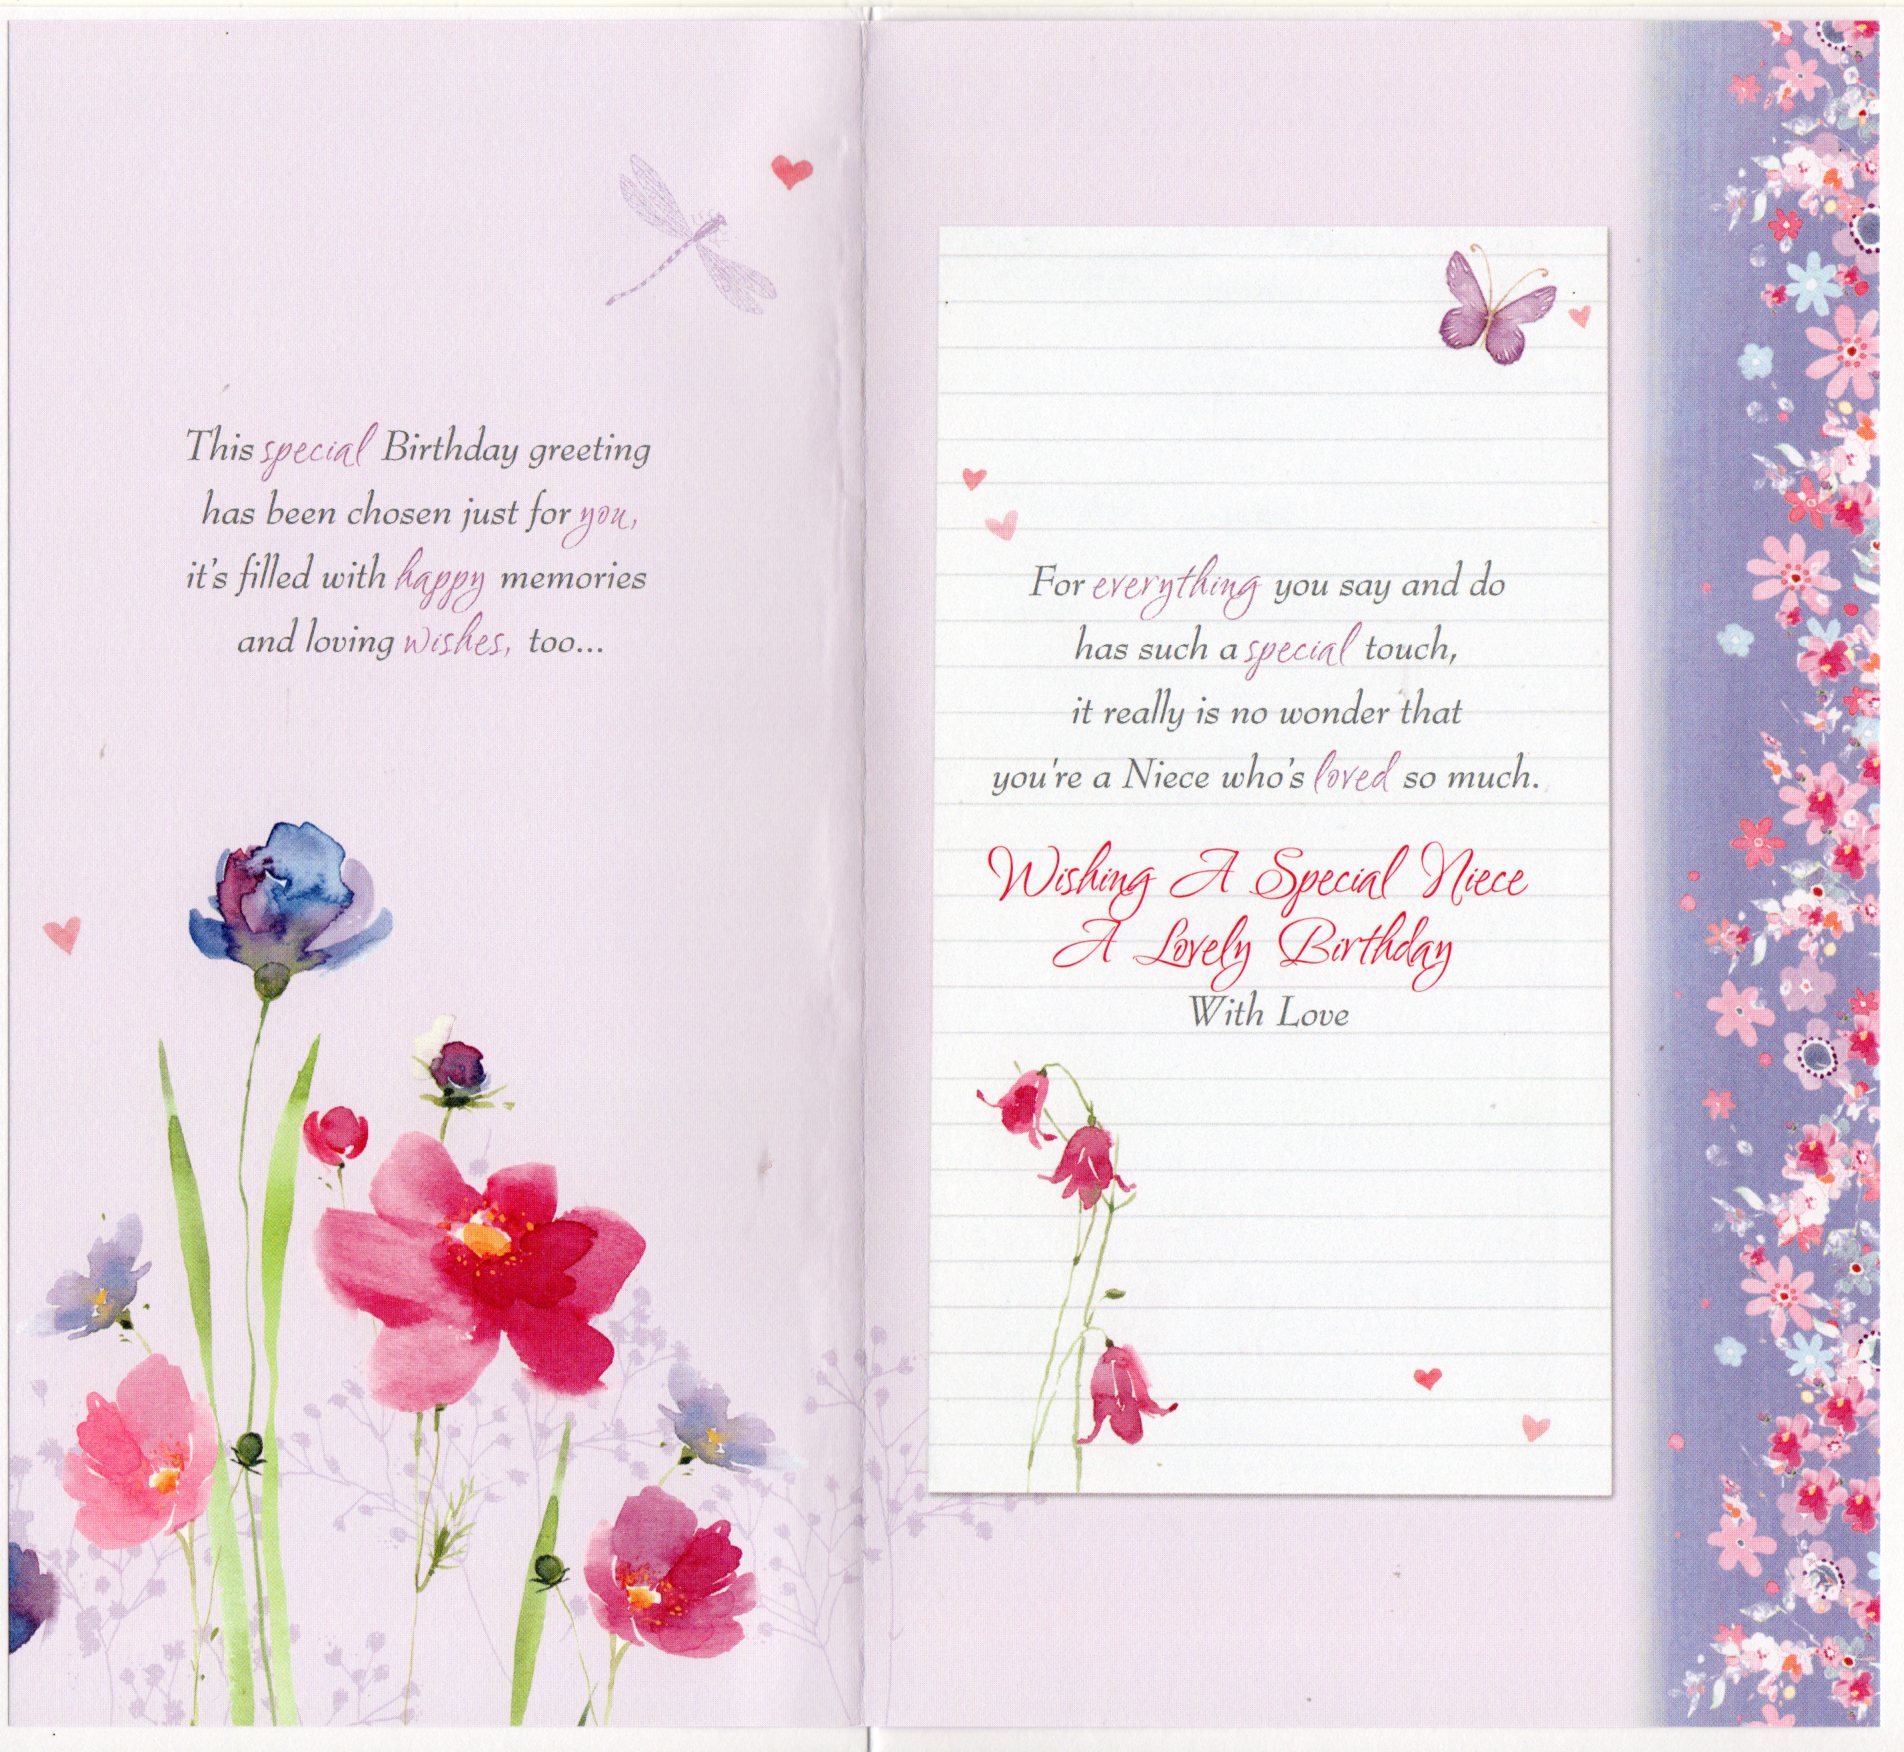 This special Birthday greeting
has been chosen just for you,
it's filled with happy memories
and loving wishes, too...
For everything you say and do
has such a special touch,
it really is no wonder that
you're a Niece who's loved so much.
Wishing A Special Niece
A Lovely Birthday
With Love